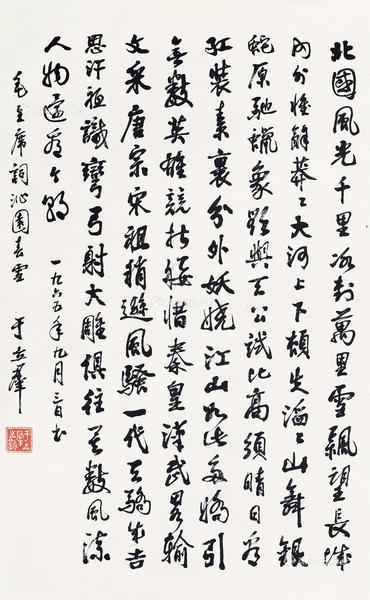 北國風光千里冰封萬里雪飄望長城
內外惟餘莽々大河上下頓失滔々山舞銀
蛇原馳蠟象欲與天公試比高須晴日看
紅裝素裹分外妖嬈江山如此多嬌引
無數英雄競折腰惜秦皇漢武略輸
文采唐宗宋祖稍遜風騷一代天驕成吉
思汗祗識彎弓射大雕俱往矣數風流
人物還看今朝 一九六五年九月三日書
毛主席詞沁園春雪 于立羣